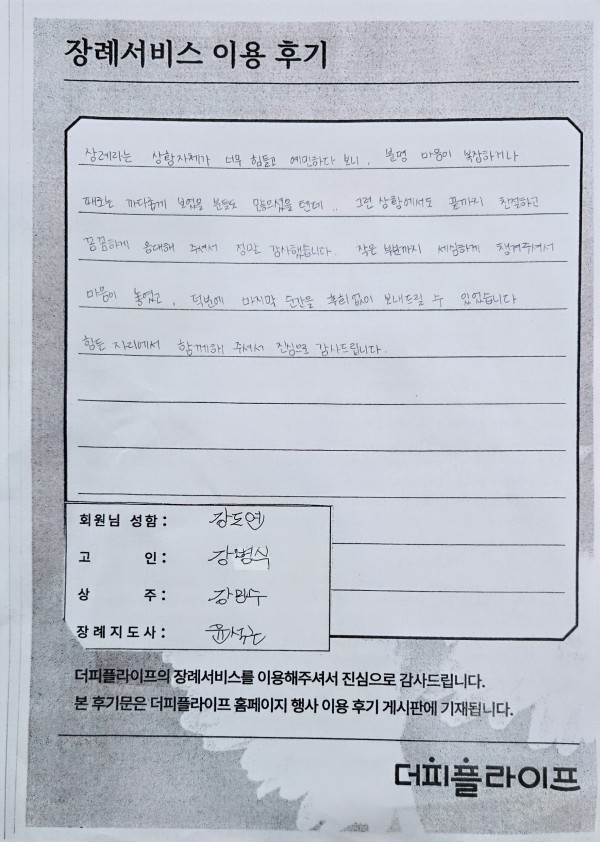 장례서비스 이용 후기
장례라는 상황자체가 너무 힘들고 예민하다 보니, 분명 마음이 복잡하거나
때로는 까다롭게 보였을 분들도 많으셨을 텐데.. 그런 상황에서도 끝까지 친절하고
꼼꼼하게 응대해 주셔서 정말 감사했습니다. 작은 부분까지 세심하게 챙겨주셔서
마음이 놓였고, 덕분에 마지막 순간을 후회없이 보내드릴 수 있었습니다
힘든 자리에서 함께해 주셔서 진심으로 감사드립니다.
회원님 성함 : 강도연
고 인 : 강병식
상 주 : 강민수
장례지도사 :
더피플라이프의 장례서비스를 이용해주셔서 진심으로 감사드립니다.
본 후기문은 더피플라이프 홈페이지 행사 이용 후기 게시판에 기재됩니다.
더피플라이프